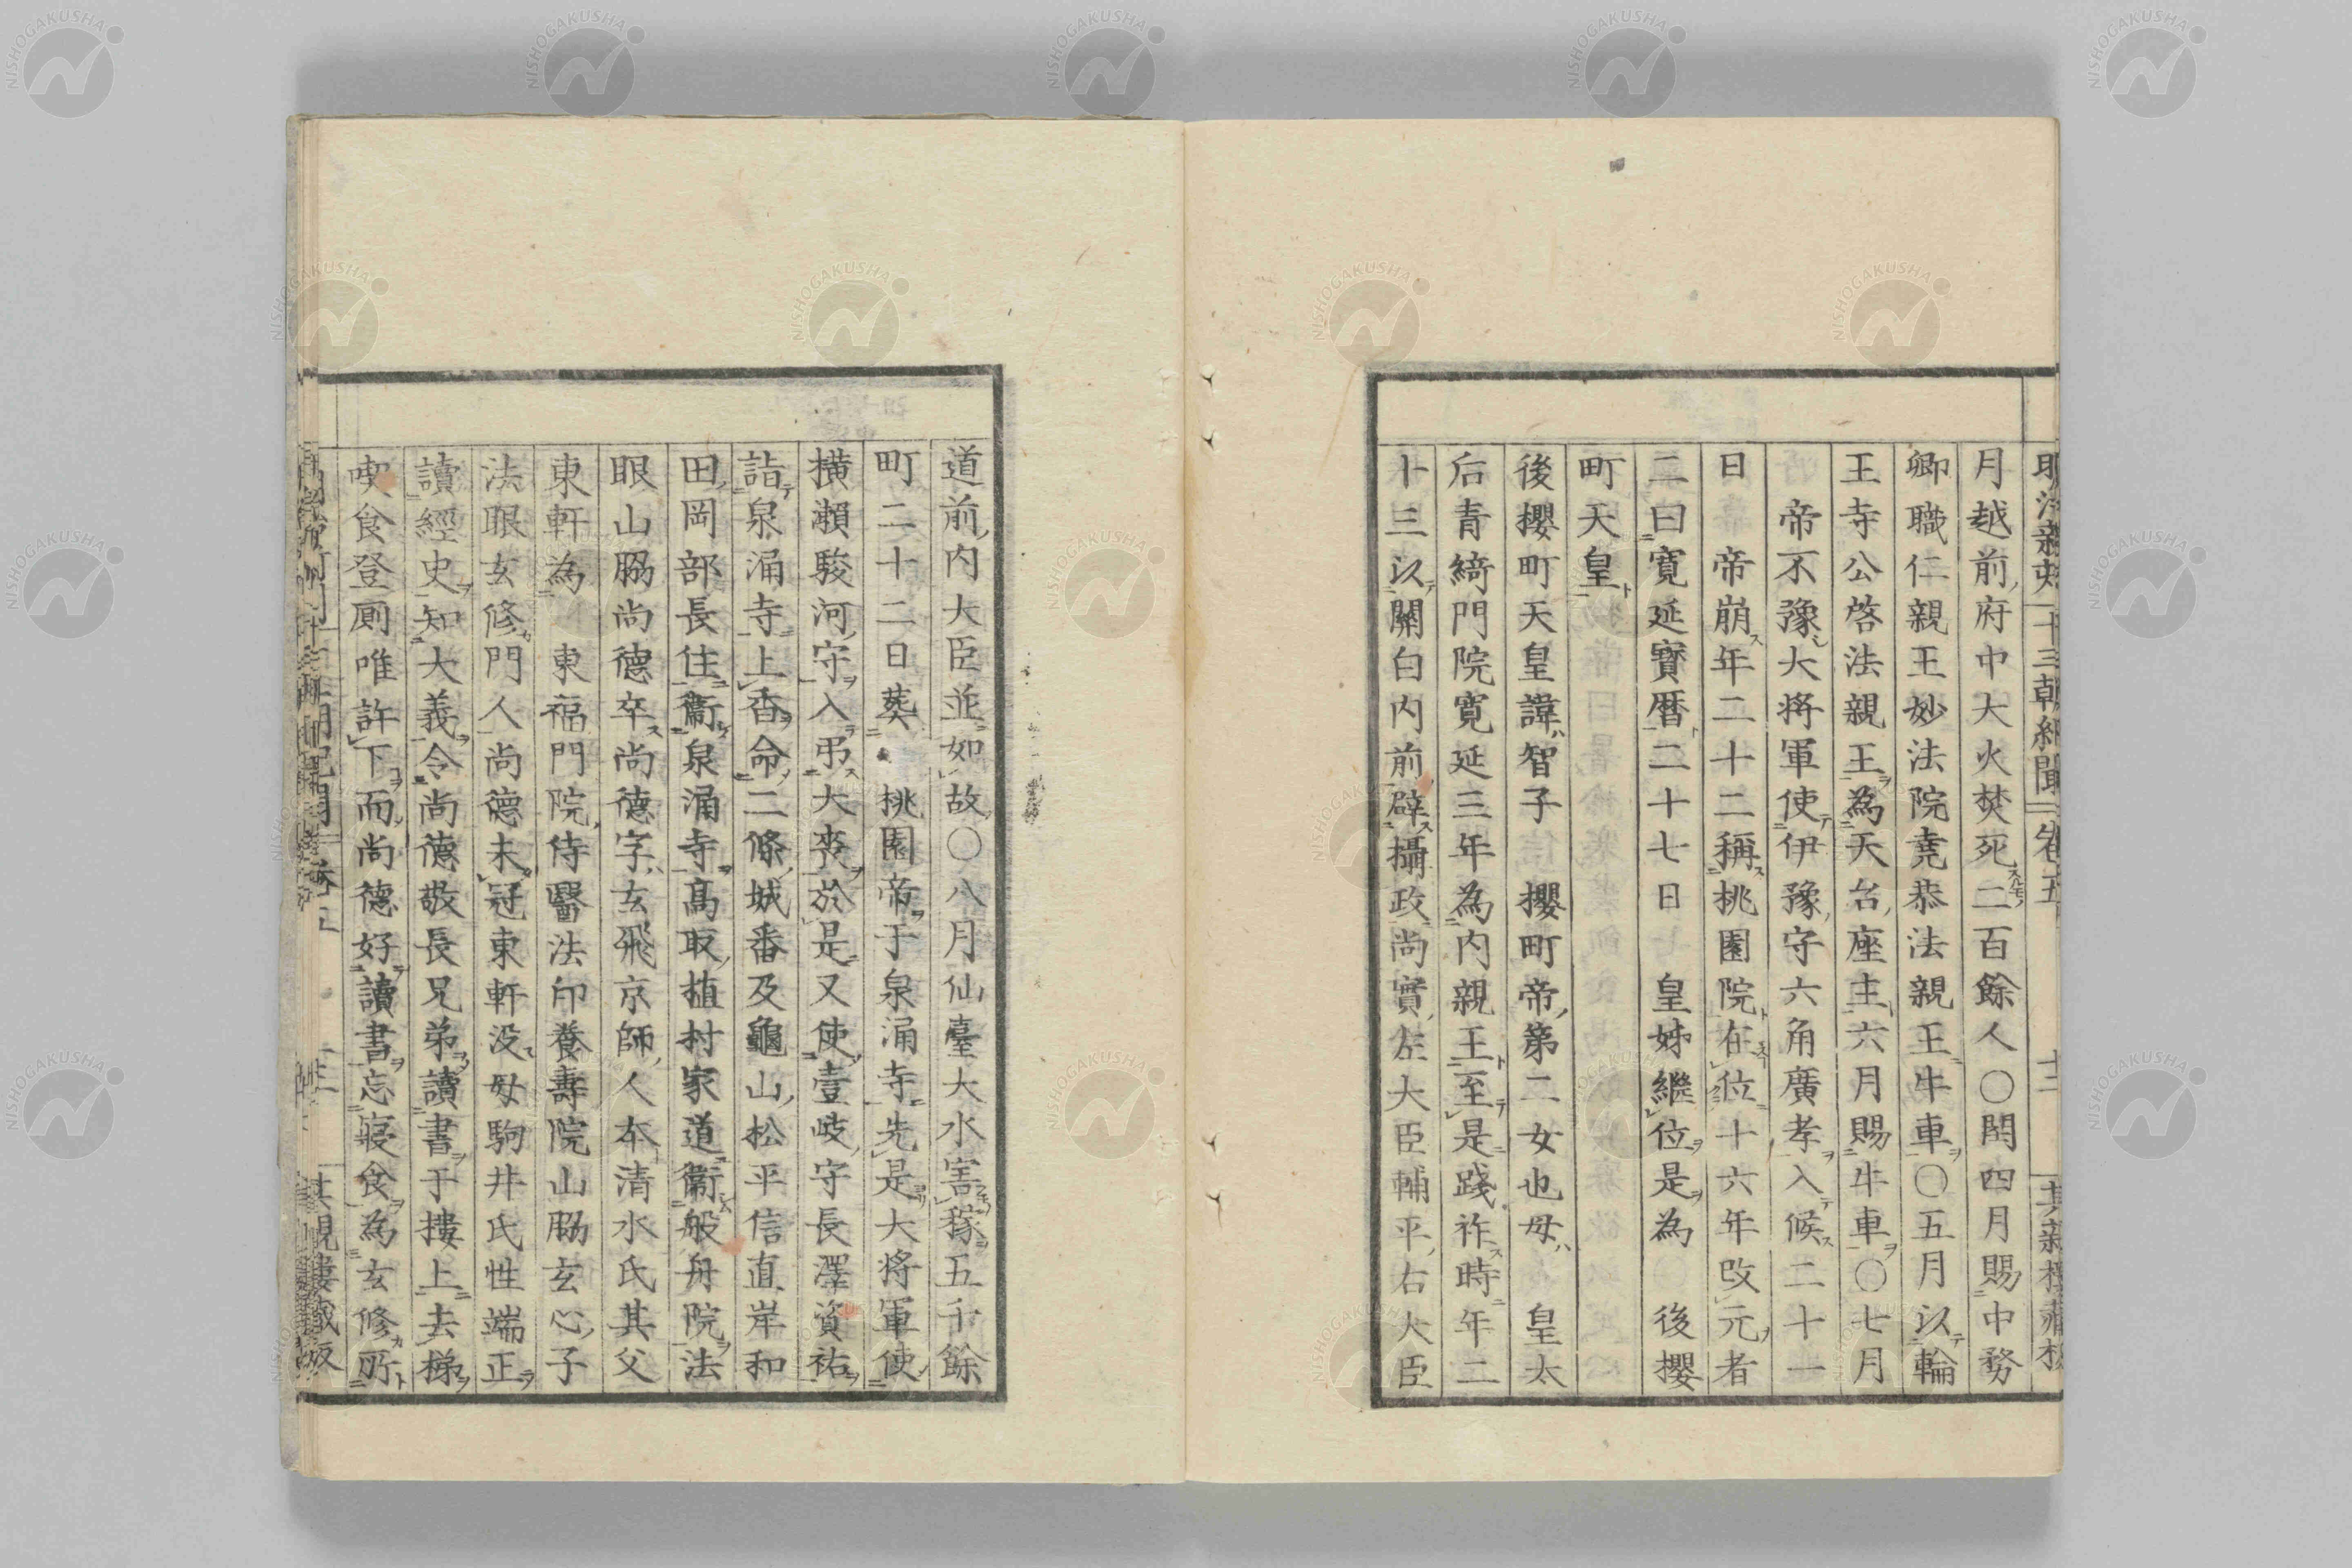 月越前府中大火焚死二百餘人〇閏四月賜中務
卿職仁親王妙法院堯恭法親王牛車〇五月以輪
王寺公啓法親王為天台座主六月賜牛車〇七月
帝不豫大將軍使伊豫守六角廣孝入候二十一
日 帝崩年二十二稱桃園院在位十六年改元者
二曰寛延寶暦二十七日 皇姊繼位是為 後櫻
町天皇
後櫻町天皇諱智子 櫻町帝第二女也母 皇太
后青綺門院寛延三年為内親王至是踐祚時年二
十三以關白内前辟攝政尚實左大臣輔平右大臣
道前内大臣並如故〇八月仙臺大水害稼五千餘
町二十二日葬 桃園帝于泉涌寺先是大將軍使
横瀬駿河守入弔大喪於是又使壹岐守長澤資祐
詣泉涌寺上香命二條城番及龜山松平信直岸和
田岡部長住衞泉涌寺高取植村家道衞般舟院法
眼山脇尚德卒尚德字玄飛京師人本清水氏其父
東軒為 東福門院侍醫法印養壽院山脇玄心子
法眼玄修門人尚德未冠東軒没母駒井氏性端正
讀經史知大義令尚德敬長兄弟讀書于樓上去梯
喫食登厠唯許下而尚德好讀書忘寢食為玄修所
NISHOGAKUSHA